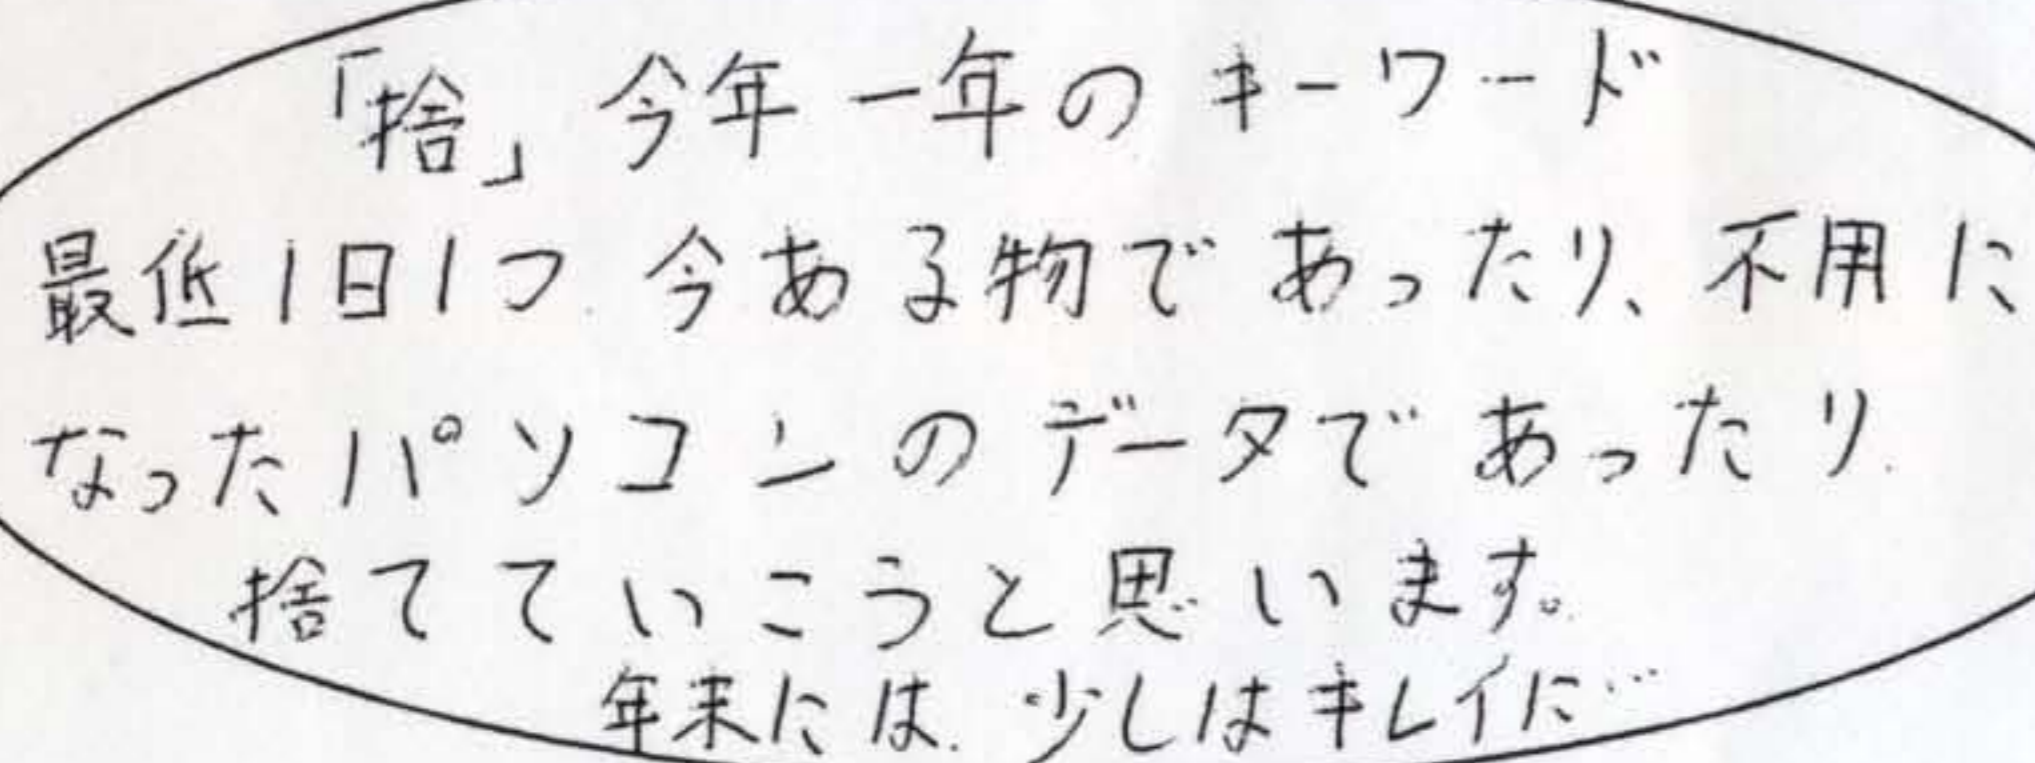 「捨」今年一年のキーワード
最低1日1つ 今ある物であったり、不用に
なったパソコンのデータであったり
捨てていこうと思います。
年末には、少しはキレイに…